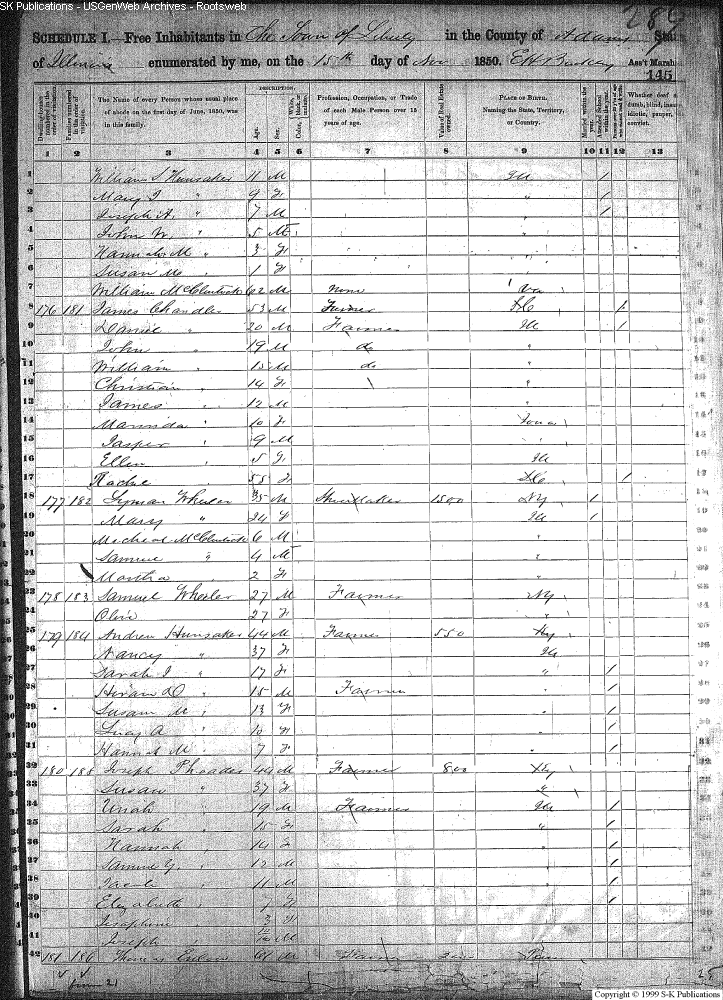 SK Publications - USGenWeb Archives - Rootsweb
SCHEDULE I.—Free Inhabitants in The Town of Liberty in the County of Adams State
of Illinois enumerated by me, on the 15th day of Nov 1850. Ass't Marshal
145
DESCRIPTION.
Dwelling-houses numbered in the order of visitation.
Families numbered in the order of visitation.
The Name of every Person whose usual place of abode on the first day of June, 1850, was in this family.
Age.
Sex.
White, black, or mulatto. Color
Profession, Occupation, or Trade of each Male Person over 15 years of age.
Value of Real Estate owned.
PLACE OF BIRTH. Naming the State, Territory, or Country.
Married within the year.
Attended School within the year.
Whether deaf & dumb, blind, insane, idiotic, pauper, or convict.
1 2 3 4 5 6 7 8 9 10 11 12 13
1 William S Hunsaker 11 M Ill /
2 Mary J " 9 F " /
3 Joseph A. " 7 M " /
4 John W. " 5 M "
5 Hannah M " 3 F "
6 Susan M " 1 F "
7 William McClintock 62 M none Va
8 176 181 James Chandler 53 M Farmer /
9 Daniel " 20 M Farmer Ill /
10 John " 19 M do "
11 William " 15 M do "
12 Christian " 14 F "
13 James " 12 M "
14 Marinda " 10 F Iowa
15 Jasper " 9 M "
16 Ellen " 5 F Ill
17 55 F /
18 177 182 Lyman Wheeler 35 M Shoemaker 1500 NY /
19 Mary " 24 F Ill /
20 McClintock 6 M "
21 Samuel " 4 M "
22 Martha 2 F "
23 178 183 Samuel Wheeler 27 M Farmer NY
24 Olive 27 F "
25 179 184 Andrew Hunsaker 44 M Farmer 550 Ky
26 Nancy " 37 F Ill
27 Sarah J " 17 F " /
28 Hiram D " 15 M Farmer " /
29 Susan M " 13 F " /
30 Lucy A " 10 F " /
31 Hannah M " 7 F " /
32 180 185 Joseph Rhoades 44 M Farmer 800 Ky
33 Susan " 37 F "
34 Uriah " 19 M Farmer Ill /
35 Sarah " 15 F " /
36 Hannah " 14 F " /
37 Samuel Y. " 12 M " /
38 Jacob " 11 M " /
39 Elizabeth " 7 F /
40 Josephine " 3 F
41 Joseph M
42 181 186 Thomas M Farmer
Copyright © 1999 S-K Publications